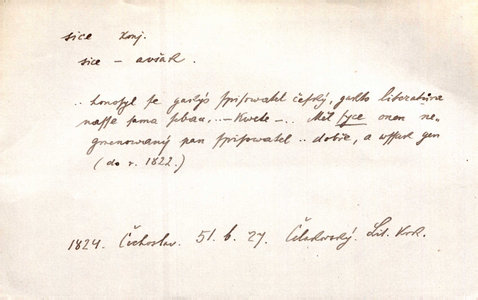 sice konj.
sice – avšak.
.. honosyl se gakýs spisowatel český, gakto literatura
nasse sama sebau, .. – Kwete – .. Měl syce onen ne-
gmenowaný pan spisowatel .. dobře, a wssak gen
(do r. 1822.)
1824. Čechoslav. 51. b. 27. Čelakowský. Lit. Krk.